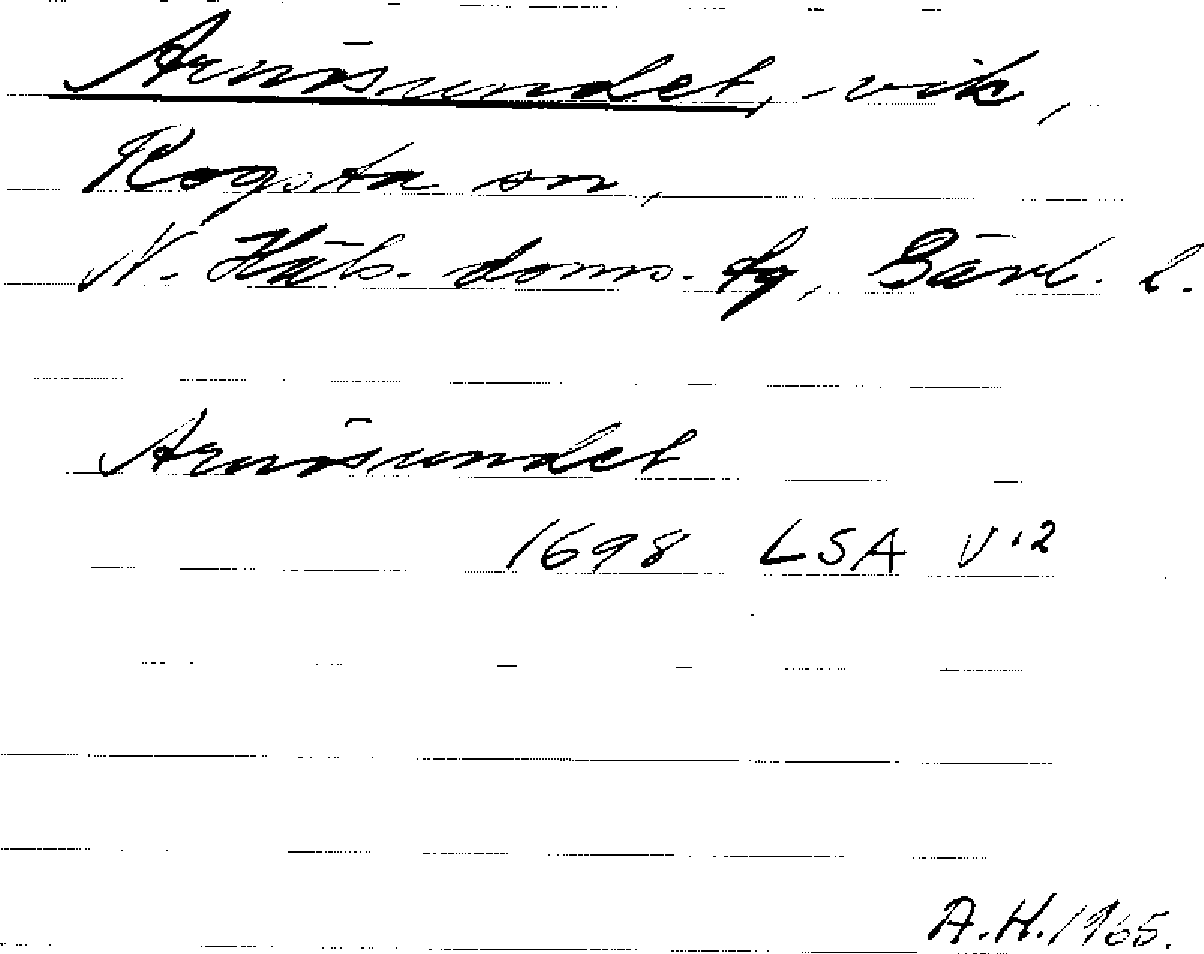 Arnösundet, vik,
Rogsta sn,
N. Häls. doms. tg, Gävl. l.
Arnösundet
1698 LSA V12
A.H. 1965.